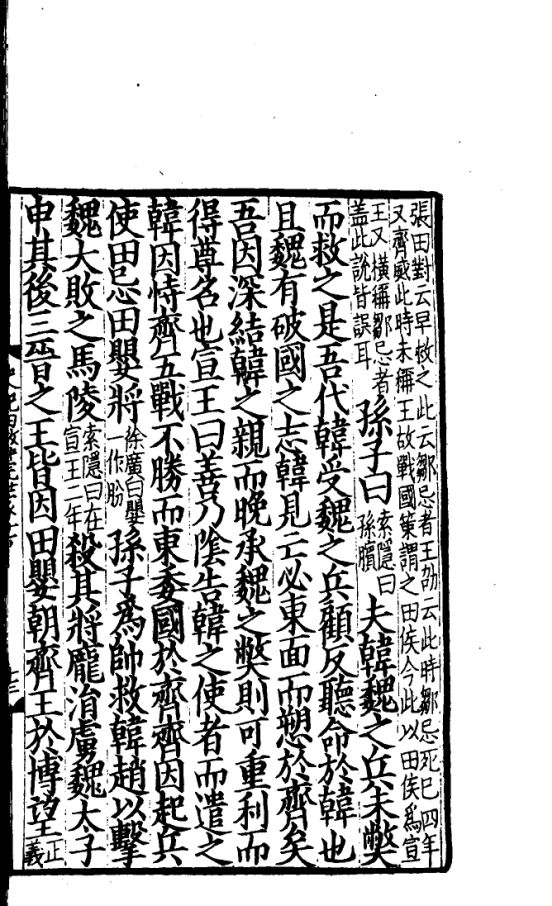 張田對云早救之此云鄒忌者王劭云此時鄒忌死巳四年
又齊威此時未稱王故戰國策謂之田侯今此以田侯爲宣
王又横稱鄒忌者
盖此說皆誤耳
孫子曰
索隱曰
孫臏
夫韓魏之兵未㢢
而救之是吾代韓受魏之兵顧反聽命於韓也
且魏有破國之志韓見亡必東面而愬於齊矣
吾因深結韓之親而晚承魏之㢢則可重利而
得尊名也宣王曰善乃隂告韓之使者而遣之
韓因恃齊五戰不勝而東委國於齊齊因起兵
使田忌田嬰將
徐廣曰嬰
一作肦
孫子爲帥救韓趙以擊
魏大敗之馬陵
索隱曰在
宣王二年
殺其將龐涓虜魏太子
申其後三晉之王皆因田嬰朝齊王於博望
正
義